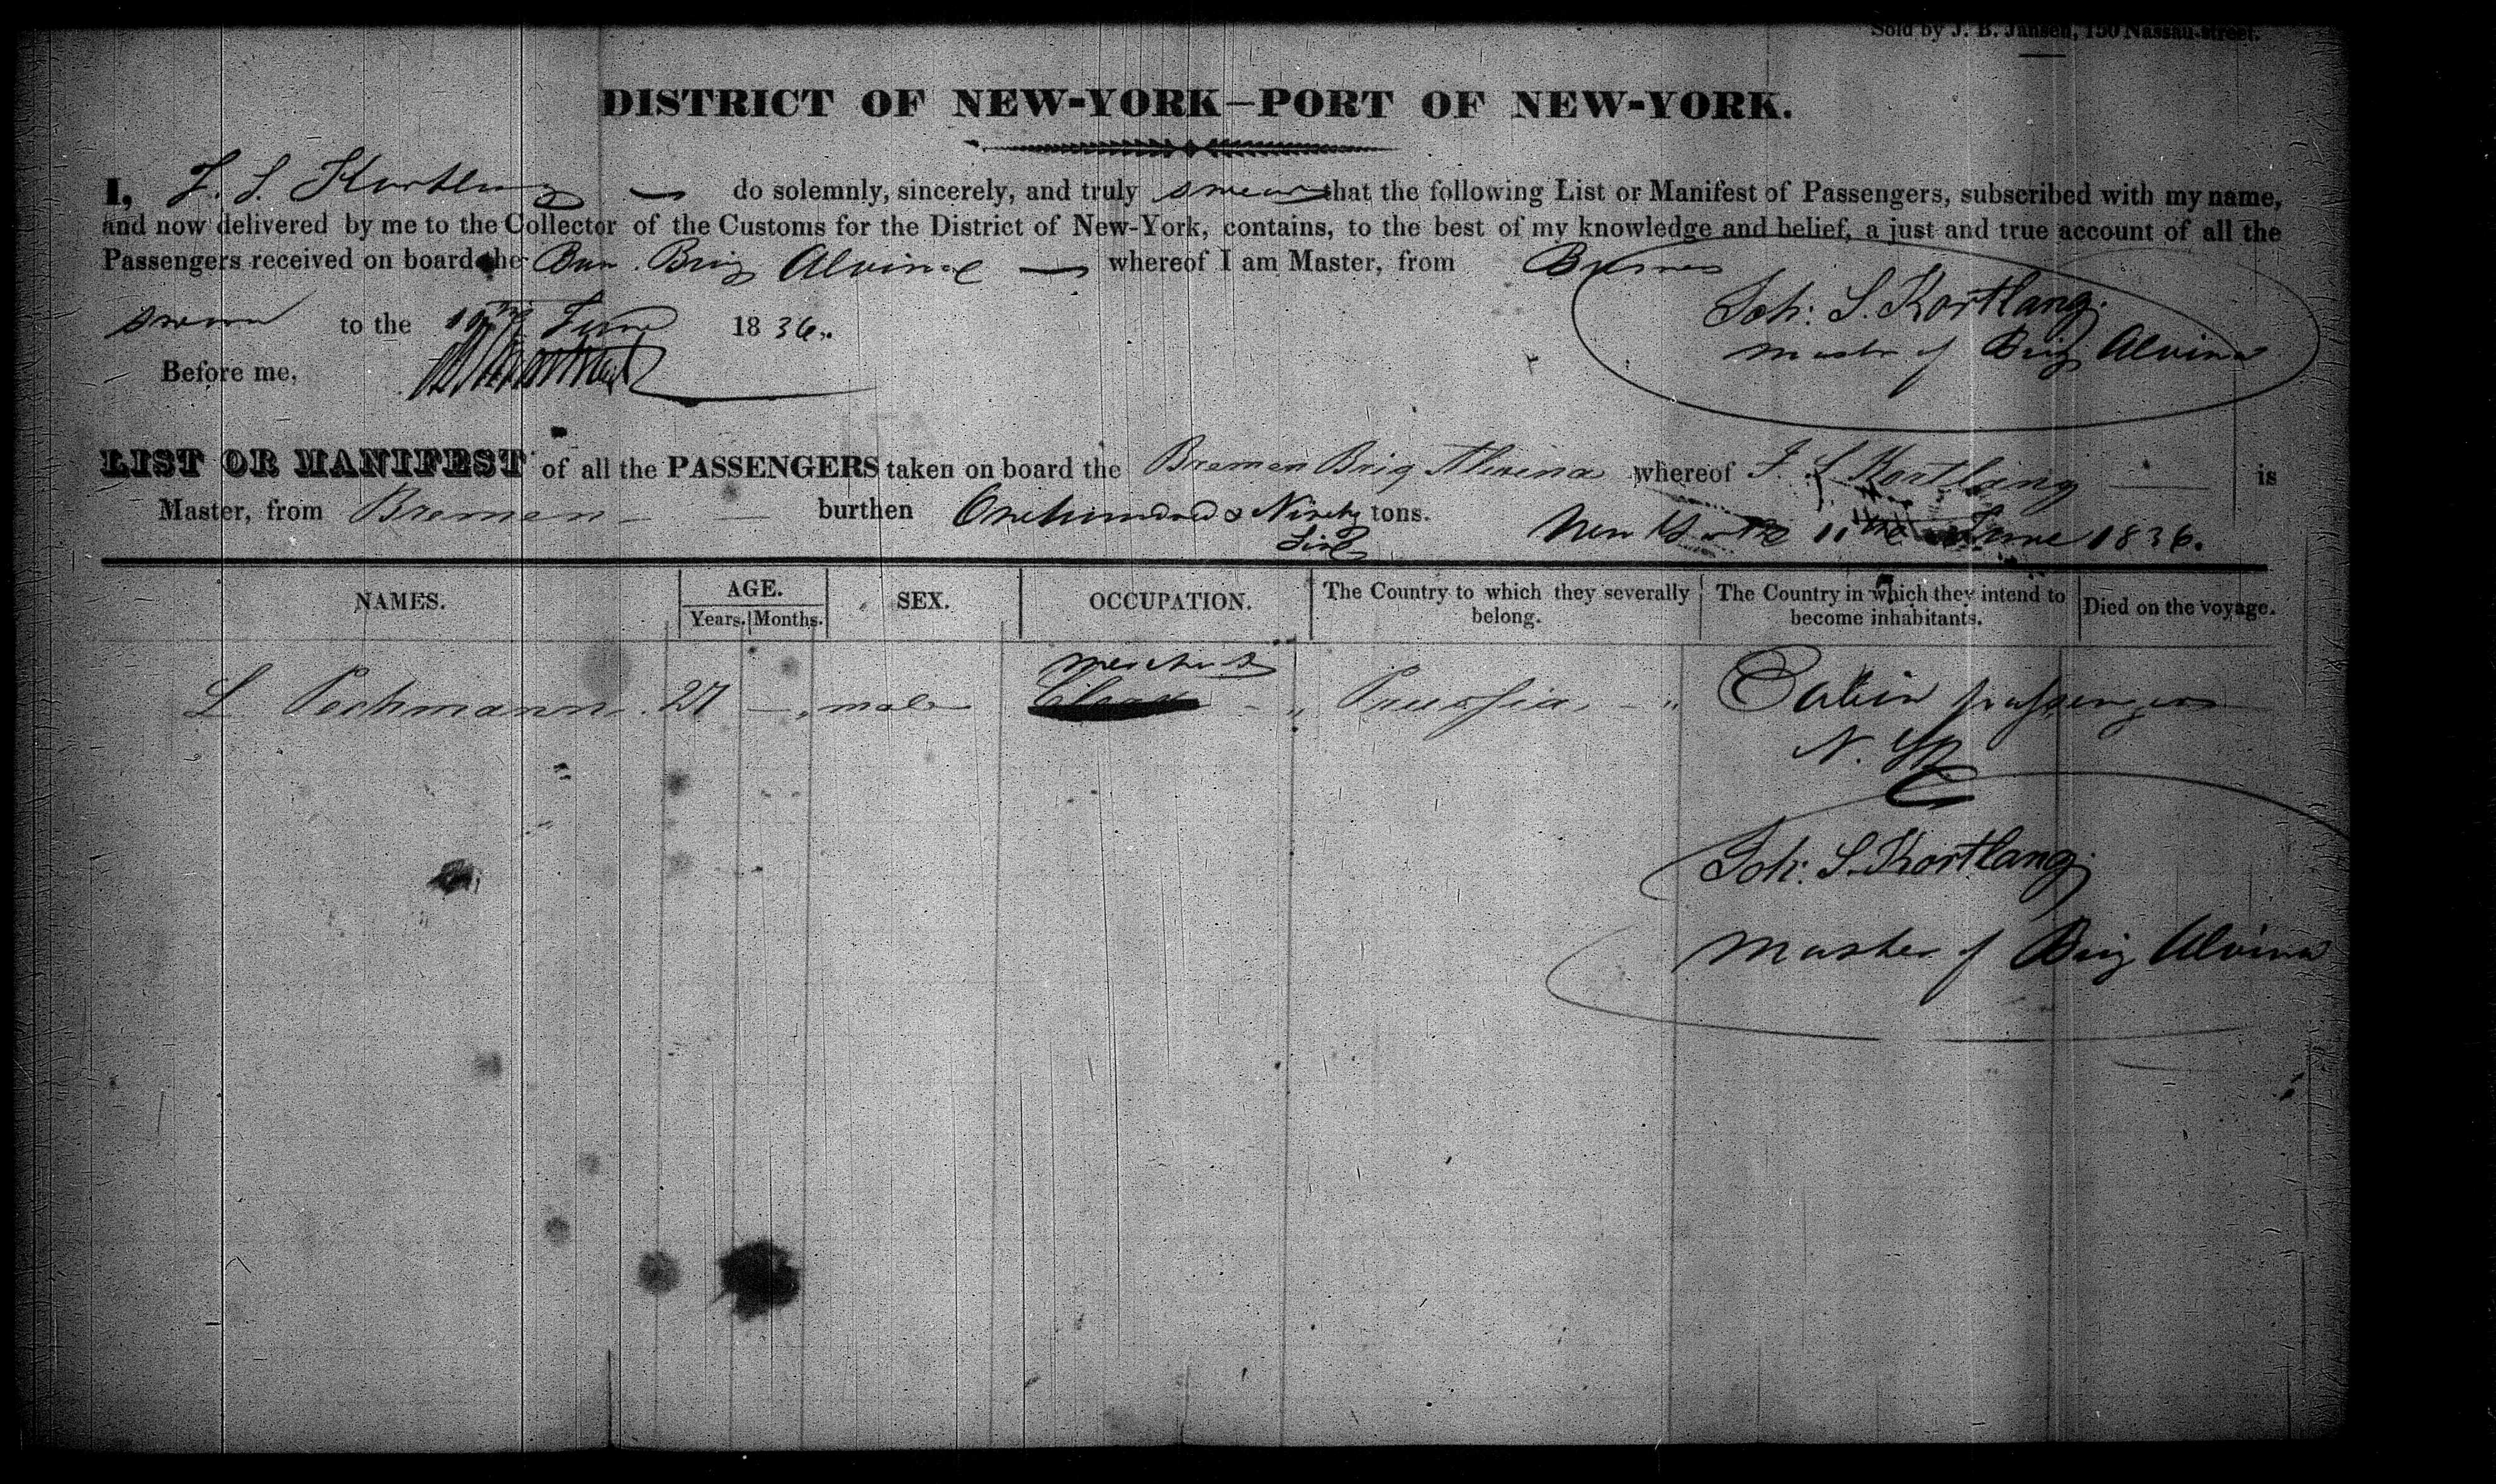 Sold by J. B. Jansen, 150 Nassau-street.
DISTRICT OF NEW-YORK—PORT OF NEW-YORK.
I, J. S. Kortlang — do solemnly, sincerely, and truly swear that the following List or Manifest of Passengers, subscribed with my name,
and now delivered by me to the Collector of the Customs for the District of New-York, contains, to the best of my knowledge and belief, a just and true account of all the
Passengers received on board the Brig Alvina — whereof I am Master, from Bremen
Joh: S. Kortlang.
master of Brig Alvina
sworn to the June 1836.
Before me,
LIST OR MANIFEST of all the PASSENGERS taken on board the Bremen Brig Alvina whereof J. S. Kortlang is
Master, from Bremen burthen One hundred & Ninety tons.
New York 11th June 1836.
NAMES. AGE. SEX. OCCUPATION. The Country to which they severally belong. The Country in which they intend to become inhabitants. Died on the voyage.
Years. Months.
merchant
L Pechmann 27 — male " Prussia " Cabin passenger
N. Y.
Joh: S. Kortlang.
Master of Brig Alvina